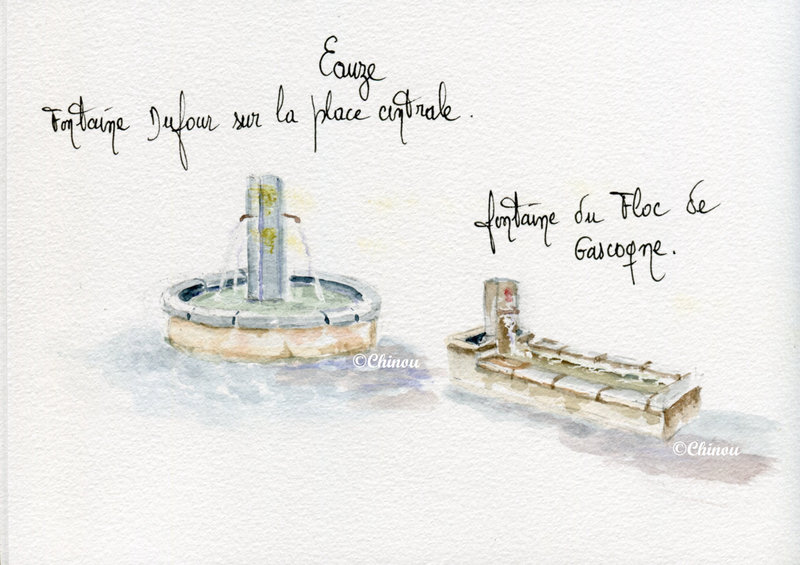 Eauze
Fontaine Dufour sur la place centrale.
fontaine du Floc de
Gascogne.
©Chinou
©Chinou